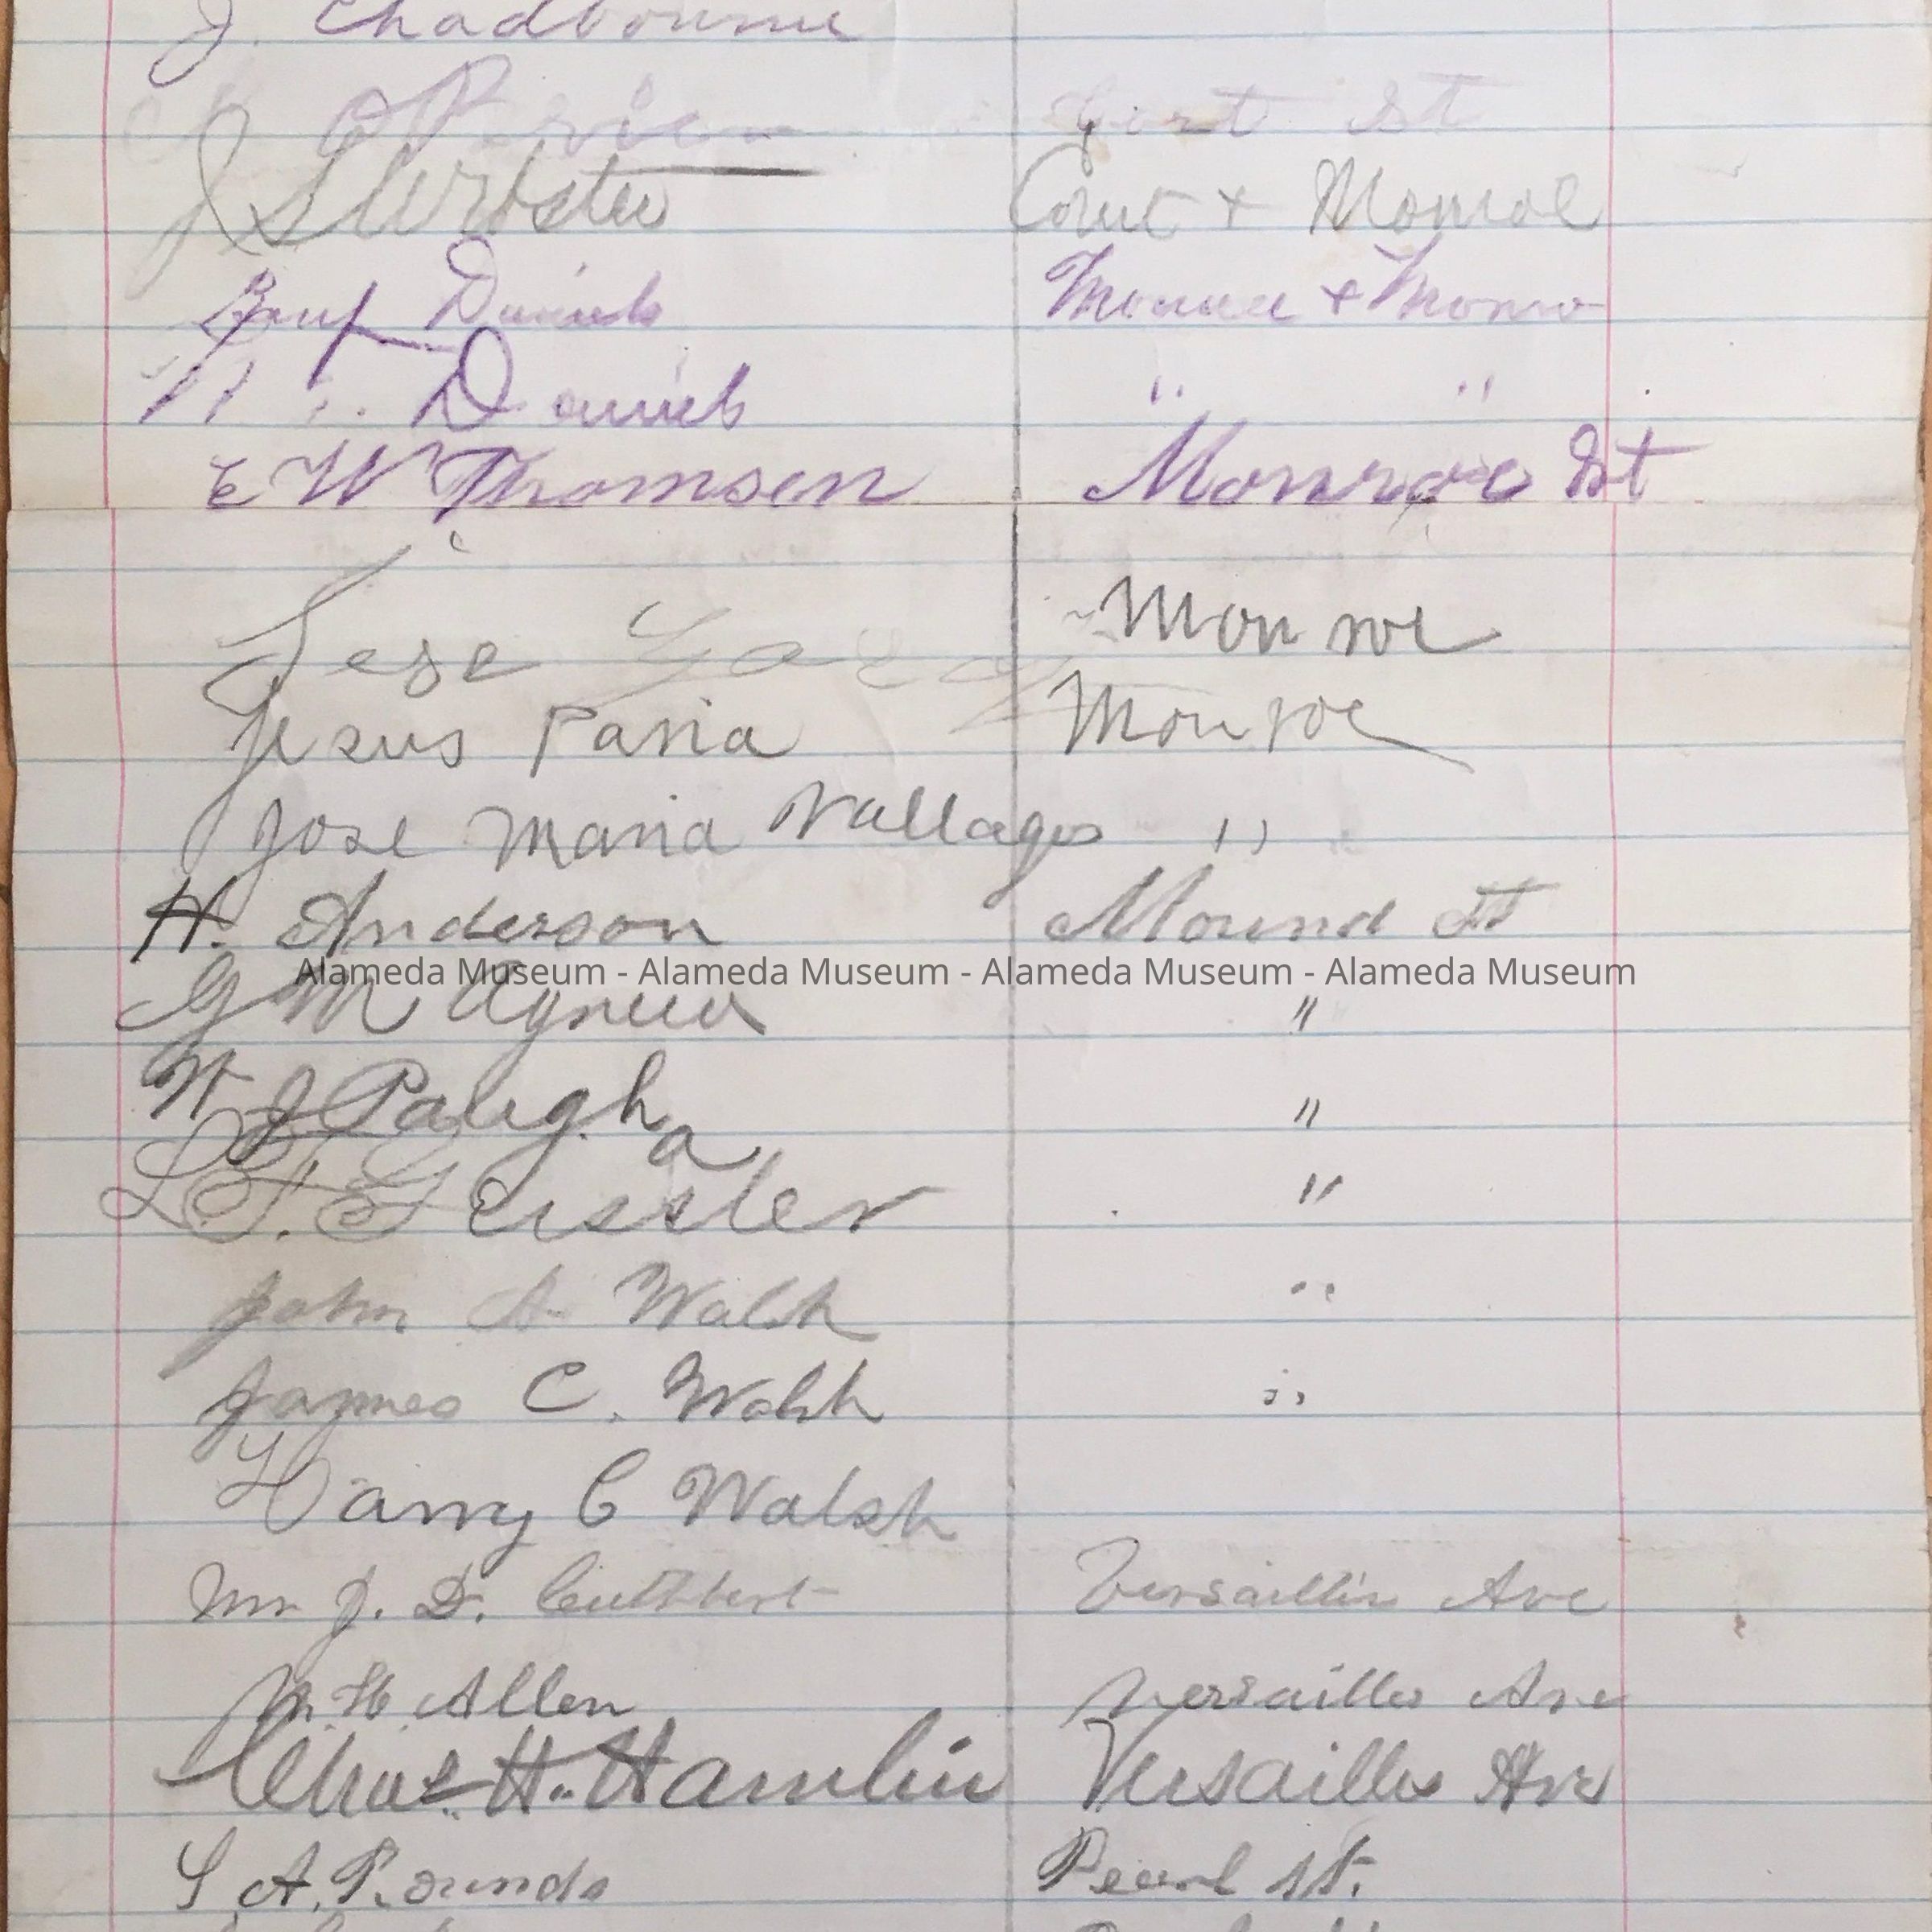 J. Chadbourne
O'Brien Court St
J S Webster Court + Monroe
Benj Daniels + Monro
Daniels " "
E W Thomsen Monroe St
Jese Monroe
Jesus Paria Monroe
Jose Maria Vallago "
H. Anderson Mound St
G M Agnew "
Alameda Museum - Alameda Museum - Alameda Museum - Alameda Museum
J Paugh "
L. F. Geissler "
John A Walsh "
James C. Walsh "
Harry C Walsh
J. D. Cuthbert Versailles Ave
H. Allen Versailles Ave
Chas. H. Hamlin Versailles Ave
S. A. Rounds Pearl St.